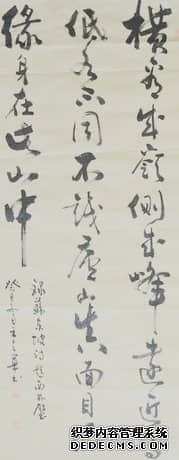 橫看成嶺側成峰遠近高
低各不同不識廬山真面目只
緣身在此山中
錄蘇東坡詩題西林壁
织梦内容管理系统
DEDECMS.COM